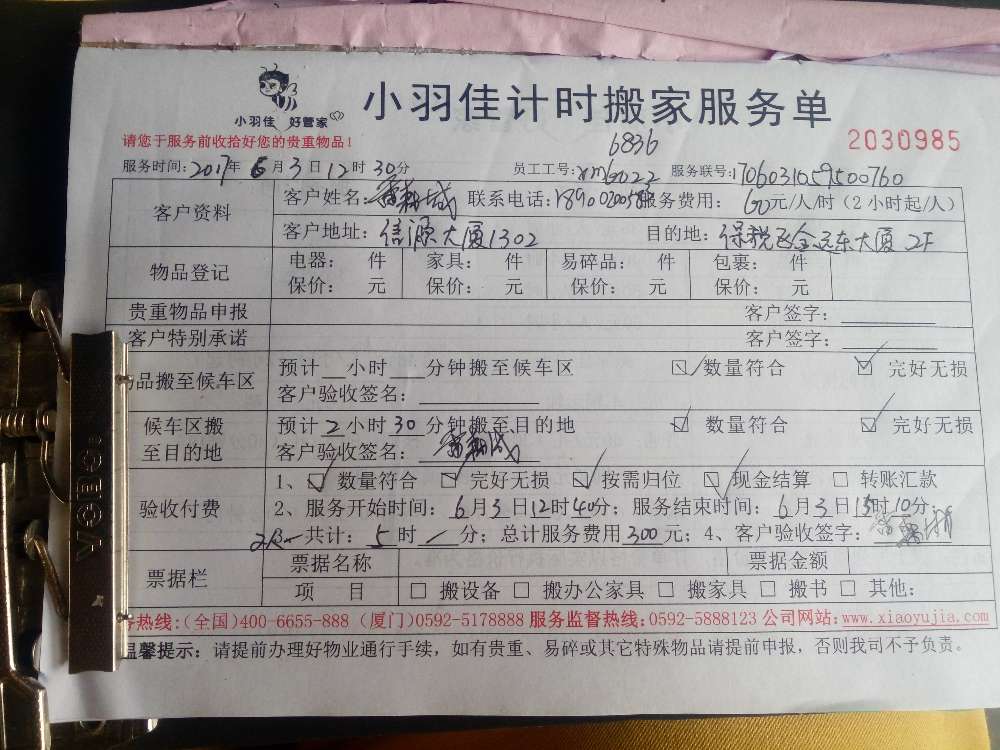 小羽佳计时搬家服务单
小羽佳 好管家
请您于服务前收拾好您的贵重物品！
6836
2030985
服务时间：2017年6月3日12时30分 员工工号：xm6022 服务联号：1706031059500760
客户资料
客户姓名： 联系电话： 服务费用：60元/人/时（2小时起/人）
客户地址：信源大厦1302 目的地：保税区金远东大厦 2F
物品登记
电器： 件 家具： 件 易碎品： 件 包裹： 件
保价： 元 保价： 元 保价： 元 保价： 元
贵重物品申报 客户签字：
客户特别承诺 客户签字：
品搬至候车区
预计 小时 分钟搬至候车区 数量符合 完好无损
客户验收签名：
候车区搬
至目的地
预计2小时30分钟搬至目的地 数量符合 完好无损
客户验收签名：
验收付费
1、 数量符合 完好无损 按需归位 现金结算 转账汇款
2、服务开始时间：6月3日12时40分；服务结束时间：6月3日15时10分
共计：5时/分；总计服务费用300元；4、客户验收签字：
票据栏
票据名称 票据金额
项 目 搬设备 搬办公家具 搬家具 搬书 其他：
务热线：(全国)400-6655-888 (厦门)0592-5178888 服务监督热线：0592-5888123 公司网站：www.xiaoyujia.com
温馨提示：请提前办理好物业通行手续，如有贵重、易碎或其它特殊物品请提前申报，否则我司不予负责。
YCBC